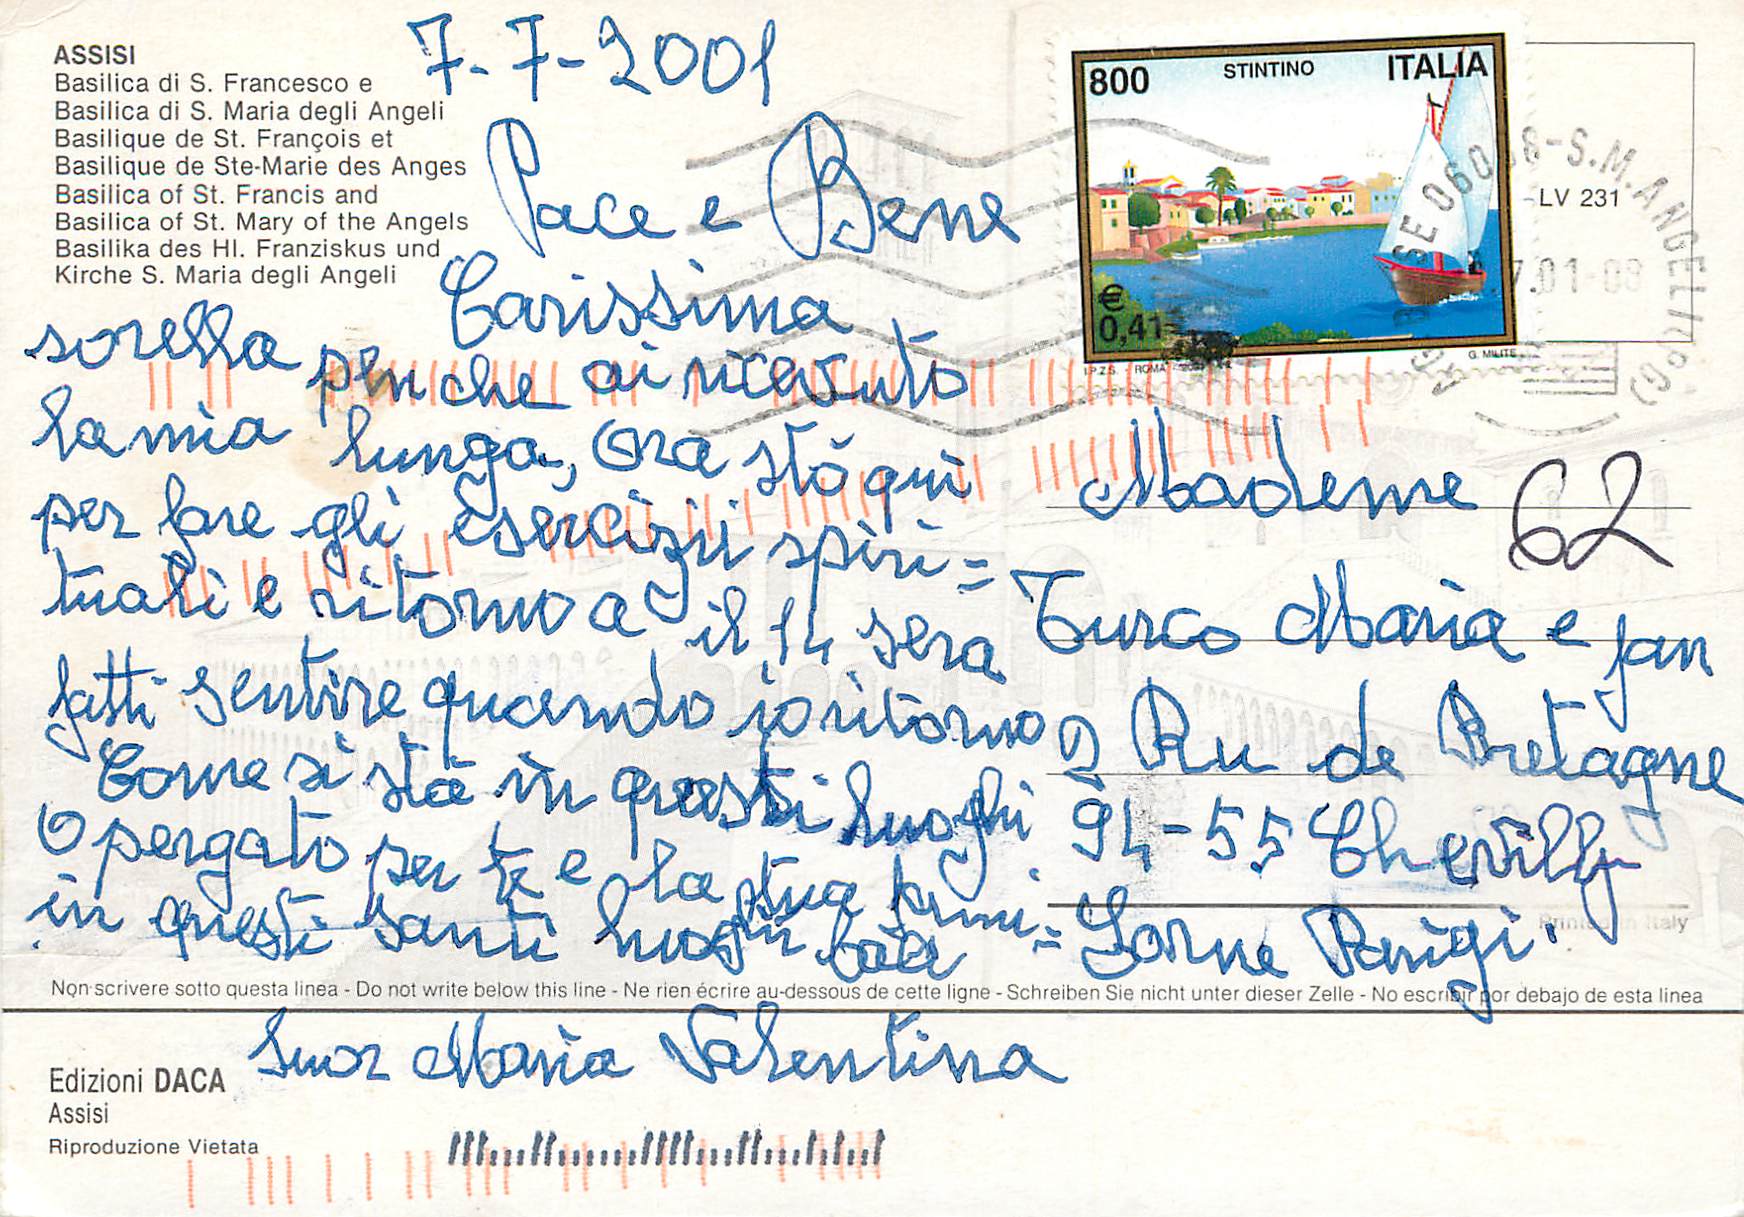 ASSISI
Basilica di S. Francesco e
Basilica di S. Maria degli Angeli
Basilique de St. François et
Basilique de Ste-Marie des Anges
Basilica of St. Francis and
Basilica of St. Mary of the Angels
Basilika des Hl. Franziskus und
Kirche S. Maria degli Angeli
7-7-2001
Pace e Bene
Carissima
sorella penche ai ricevuto
la mia lunga, Ora stò qui
per fare gli esercizii spiri=
tuali e ritorno a il 14 sera
fatti sentire quando io ritorno
Come si stà in questi luoghi
O pergato per te e la tua fami=
in questi santi luoghi
Suor Maria Valentina
800 STINTINO ITALIA
€
0,41
I.P.Z.S. - ROMA - 2001 G. MILITE
LV 231
S.M. ANGELI (PG)
060
7.01-08
Mademe 62
Turco Maria e Jan
2 Ru de Bretagne
94-55 Chevilly
Larue Parigi
Printed in Italy
Non scrivere sotto questa linea - Do not write below this line - Ne rien écrire au-dessous de cette ligne - Schreiben Sie nicht unter dieser Zelle - No escribir por debajo de esta linea
Edizioni DACA
Assisi
Riproduzione Vietata